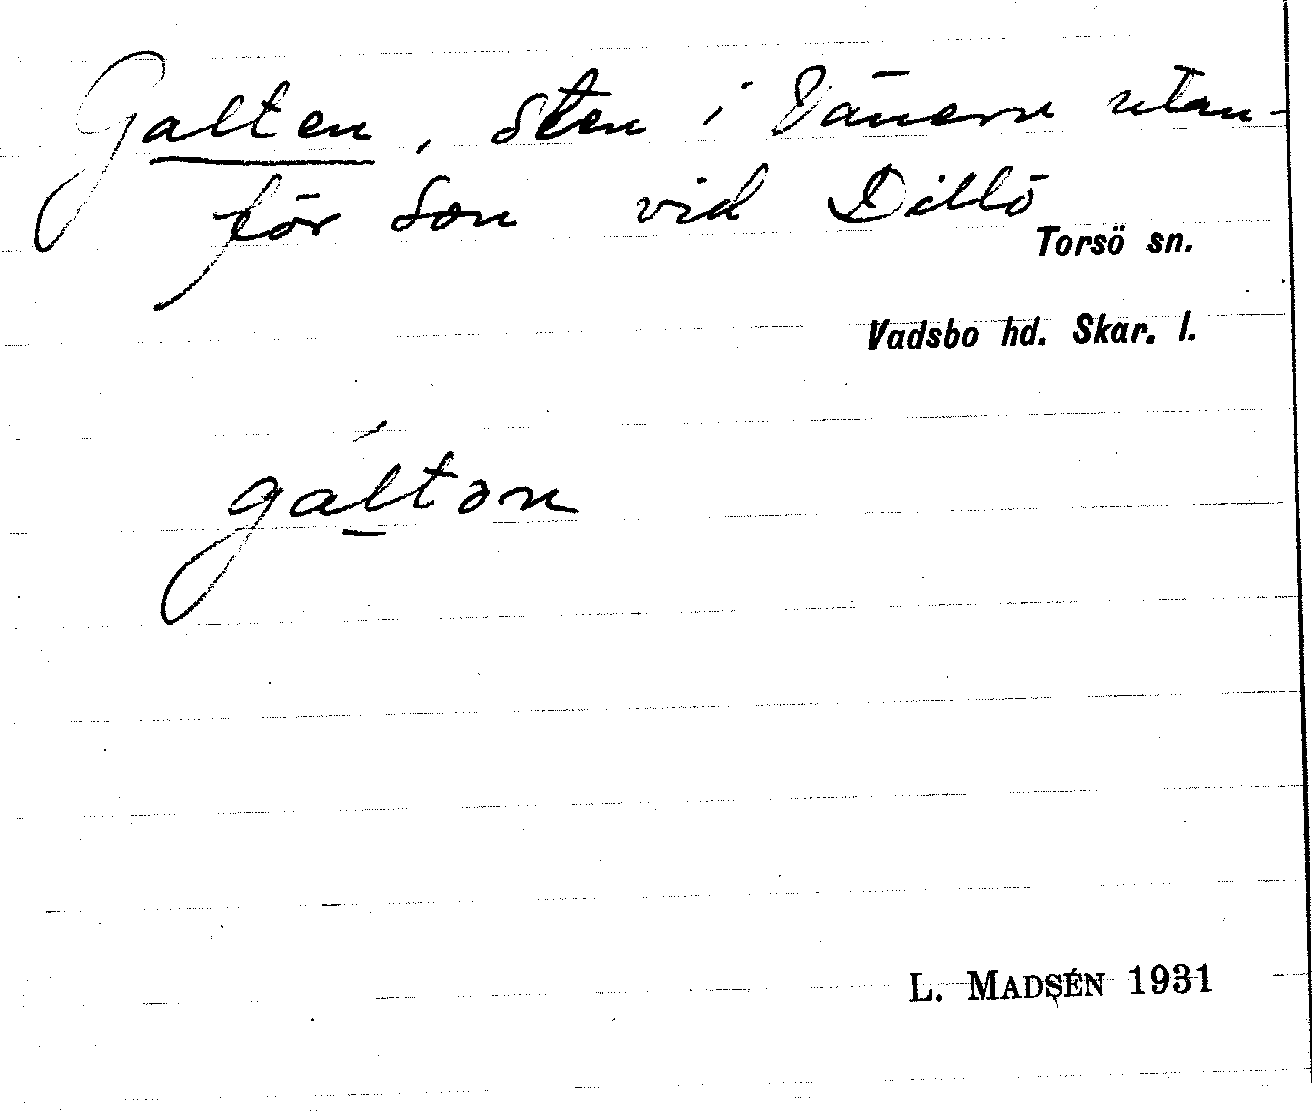 Galten, sten i Vänern utan-
för Son vid Dillö
Torsö sn.
Vadsbo hd. Skar. l.
galton
L. MADSÉN 1931